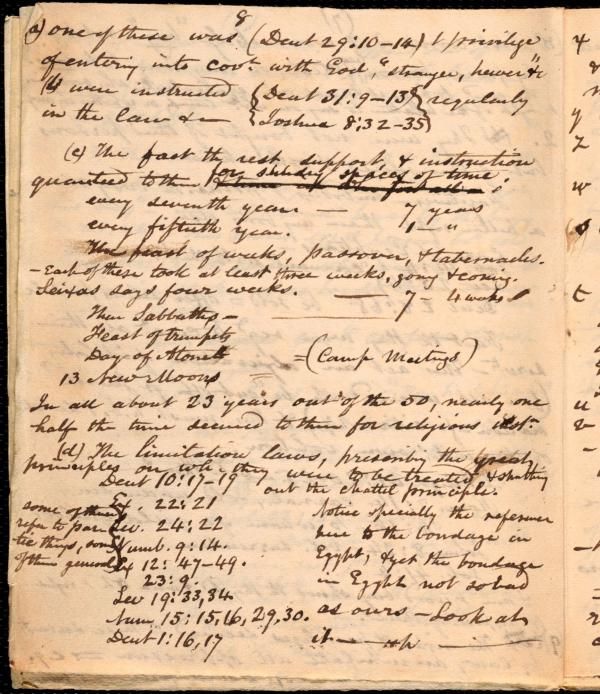 8
(a) one of these was (Deut 29:10-14) t privilige
of entering into covt. with God, "stranger, hewer" &c
(b) were instructed {Deut 31:9-13} regularly
in the law &c {Joshua 8:32-35}
(c) The fact th rest, support, & instruction
guaranteed to them for sundry spaces of time :
every seventh year — 7 years
every fiftieth year. 1 - "
The feast of weeks, passover, & tabernacles.
- Each of these took at least three weeks, going & coming.
says four weeks. — 7 -
Their Sabbaths -
Feast of trumpets
Day of Atonet = (Camp Meetings)
13 New Moons =
In all about 23 years out of the 50, nearly one
half the time secured to them for religious inst.
(d) The limitation laws, prescribing the
principles on wh. they were to be treated & shutting
Deut 10:17-19 out the chattel principle.
Ex. 22:21 Notice specially the reference
some of these Lev. 24:22 here to the bondage in
refer to
Numb. 9:14. Egypt, & yet the bondage
things, some
of them general Ex 12:47-49. in Egypt not so bad
23:9.
Lev 19:33,34
Num, 15:15,16,29,30. as ours - Look at
Deut 1:16,17 it —